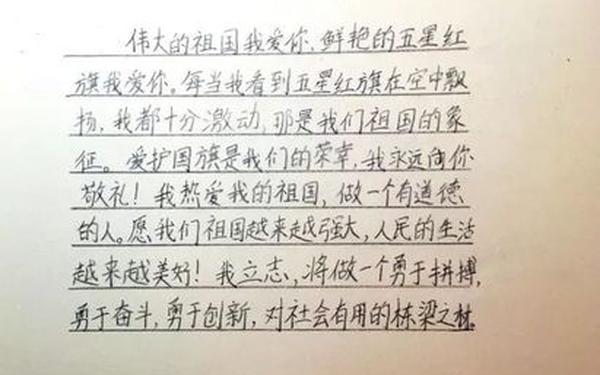 伟大的祖国我爱你,鲜艳的五星红
旗我爱你。每当我看到五星红旗在空中飘
扬,我都十分激动,那是我们祖国的象
征。爱护国旗是我们的荣幸,我永远向你
敬礼!我热爱我的祖国,做一个有道德
的人。愿我们祖国越来越强大,人民的生活
越来越美好!我立志,将做一个勇于拼搏,
勇于奋斗,勇于创新,对社会有用的栋梁之材。